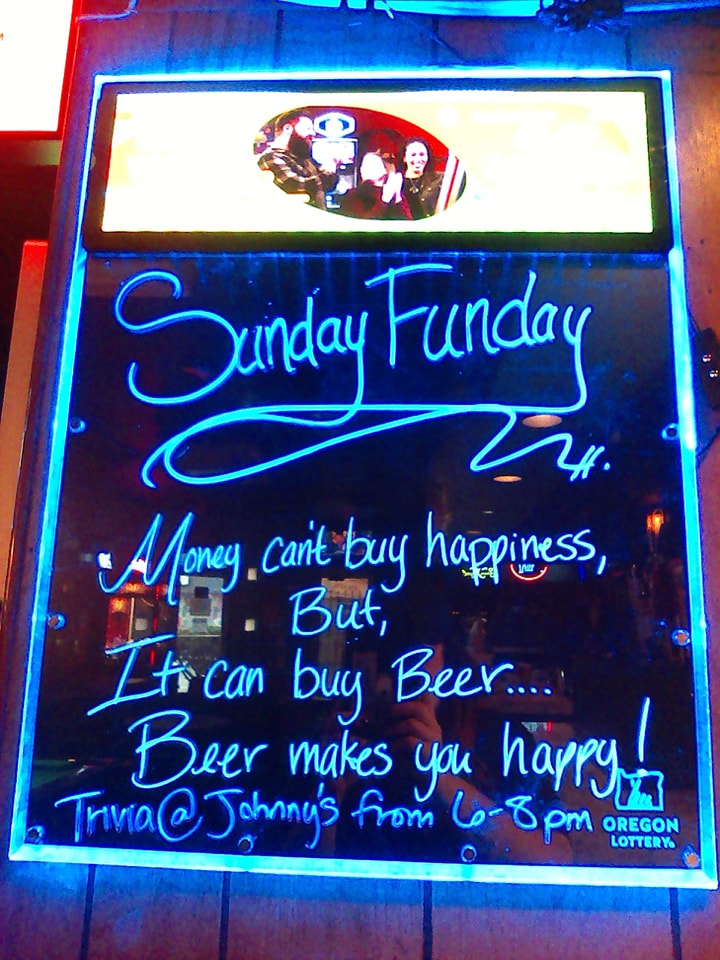 Sunday Funday
Money can't buy happiness,
But,
It can buy Beer....
Beer makes you happy!
Trivia @ Johnny's from 6-8pm
OREGON
LOTTERY